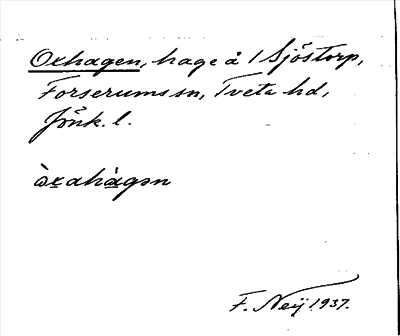 Oxhagen, hage å 1 Sjöstorp,
Forserums sn, Tveta hd,
Jönk. l.
òxahàgən
F. Neij 1937.